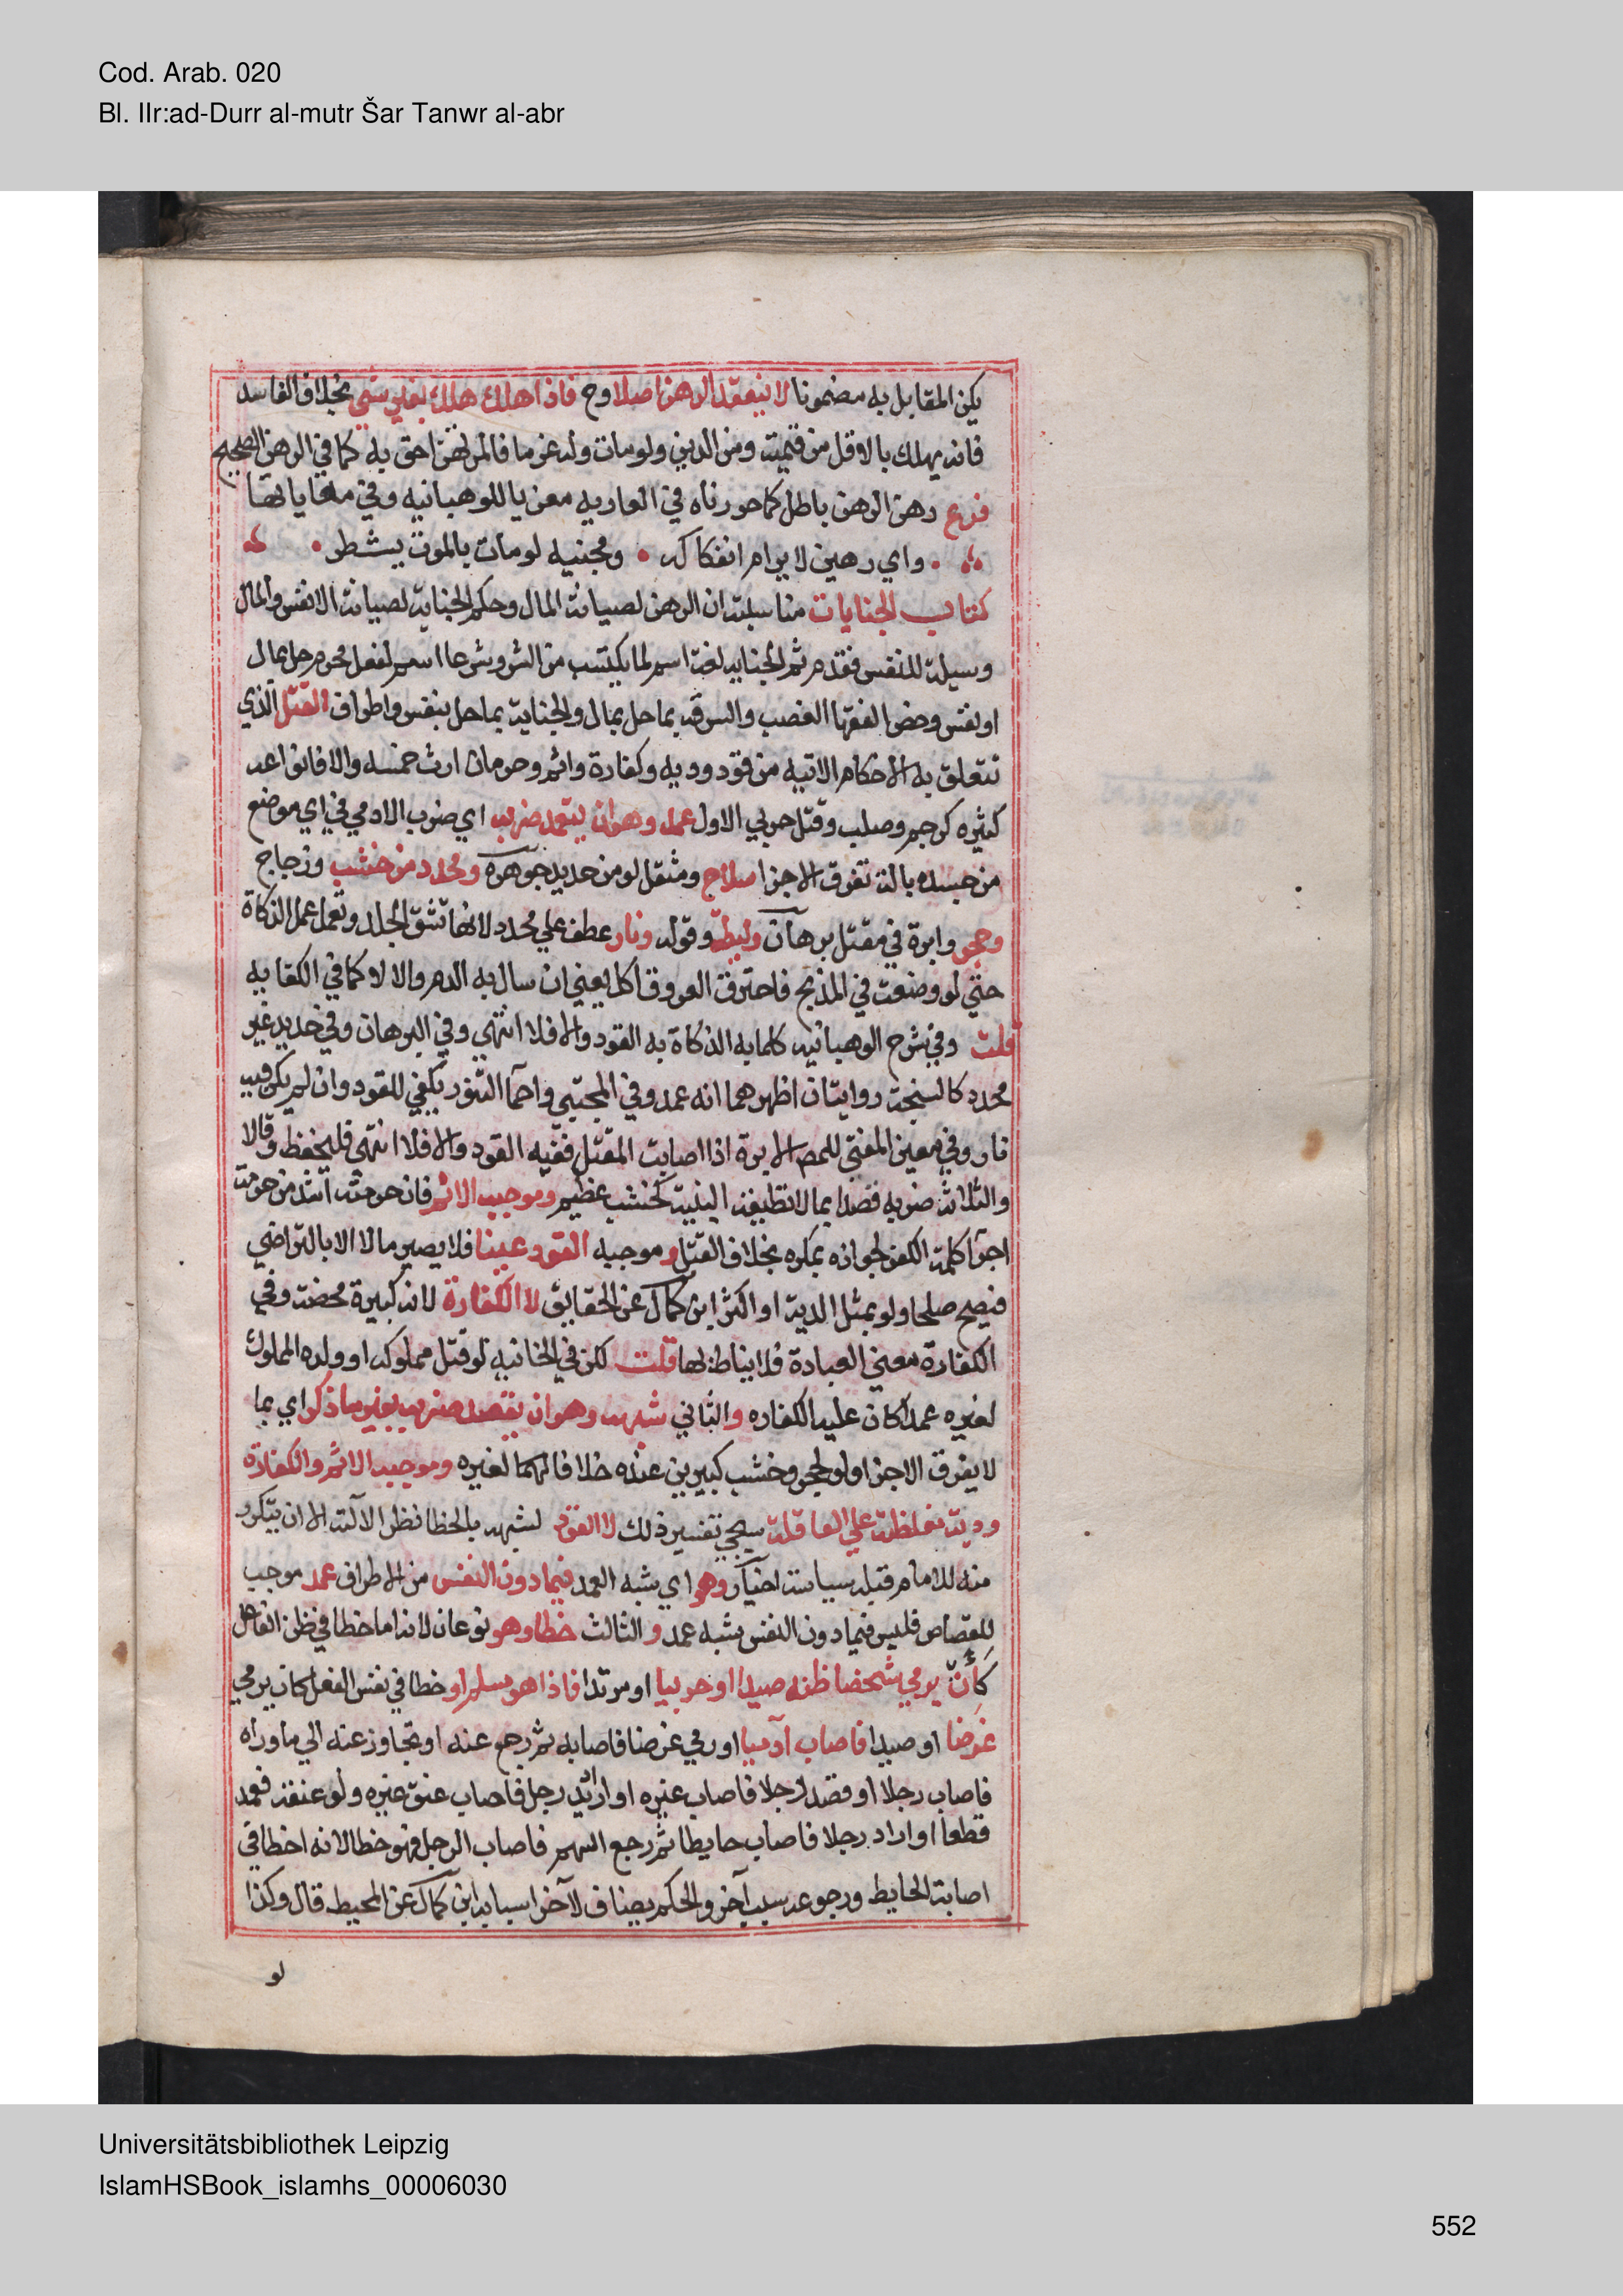 Cod. Arab. 020
Bl. IIr:ad-Durr al-mutr Šar Tanwr al-abr
يكن المقابل به مضمونا لا ينعقد الرهن اصلا وح فاذا هلك هلك بغير شي بخلاف الفاسد
فانه يهلك بالاقل من قيمته ومن الدين ولو مات وله غرما فالمرتهن احق به كما في الرهن الصحيح
فرع رهن الرهن باطل كما حررناه في العاريه معزيا للوهبانيه وفي معاياتها
واي رهين لا يرام انفكاكه • ومجنيه لو مات بالموت يشطر •
كتاب الجنايات مناسبته ان الرهن لصيانة المال وحكم الجناية لصيانة الانفس والمال
وسيلة للنفس فقدم ثم الجنايه لغة اسم لما يكتسب من الشر وشرعا اسم لفعل محرم حل بمال
او نفس وخص الفقها الغصب والسرقه بما حل بمال والجناية بما حل بنفس واطراف القتل الذي
تتعلق به الاحكام الاتيه من قود وديه وكفارة واثم وحرمان ارث خمسه والا فانواعه
كثيره كرجم وصلب وقتل حربي الاول عمد وهو ان يتعمد ضربه اي ضرب الادمي في اي موضع
من جسده بالة تفرق الاجزا سلاح ومثقل لو من حديد جوهره ومحدد من خشب وزجاج
وحجر وابرة في مقتل برهان وليطة وقوله ونار عطف علي محدد لانها تشق الجلد وتعمل عمل الذكاة
حتي لو وضعت في المذبح فاحترق العروق اكل يعني ان سال به الدم والا لا كما في الكفايه
قلت وفي شرح الوهبانيه كلما به الذكاة به القود والا فلا انتهي وفي البرهان وفي حديد غير
محدد كالسنجة روايتان اظهرهما انه عمد وفي المجتبي واحما التنور يكفي للقود وان لم يكن فيه
نار وفي معين المفتي للمص الابرة اذا اصابت المقتل ففيه القود والا فلا انتهي فليحفظ وقالا
والثلاثة ضربه قصدا بما لا تطيقه البنية كخشب عظيم وموجبه الاثم فان حرمته اشد من حرمة
اجرا كلمة الكفر لجوازه بمكره بخلاف القتل وموجبه القود عينا فلا يصير مالا الا بالتراضي
فيصح صلحا ولو بمثل الدية او اكثر ابن كمال عن الحقايق لا الكفارة لانه كبيرة محضة وفي
الكفارة معني العبادة فلا يناط بها قلت لكن في الخانيه لو قتل مملوكه او ولده المملوك
لغيره عمدا كان عليه الكفاره والثاني شبهه وهو ان يقصد ضربه بغير ما ذكر اي بما
لا يفرق الاجزا ولو بحجر وخشب كبيرين عنده خلافا لهما لغيره وموجبه الاثم والكفارة
ودية مغلظة علي العاقلة سيجي تفسير ذلك لا القود لشبهه بالخطا نظرا لآلته الا ان يتكرر
منه للامام قتله سياسة اختيار وهو اي شبه العمد فيما دون النفس من الاطراف عمد موجب
للقصاص فليس فيما دون النفس شبه عمد والثالث خطا وهو نوعان لانه اما خطا في ظن الفاعل
كأن يرمي شخصا ظنه صيدا او حربيا او مرتدا فاذا هو مسلم او خطا في نفس الفعل كان يرمي
غرضا او صيدا فاصاب آدميا او رمي غرضا فاصابه ثم رجع عنه او تجاوز عنه الي ما وراه
فاصاب رجلا او قصد رجلا فاصاب غيره او اراد يد رجل فاصاب عنق غيره ولو عنقه فعمد
قطعا او اراد رجلا فاصاب حايطا ثم رجع السهم فاصاب الرجل فهو خطا لانه اخطا في
اصابة الحايط ورجوعه سبب آخر والحكم يضاف لآخر اسبابه ابن كمال عن المحيط قال وكذا
لو
Universitätsbibliothek Leipzig
IslamHSBook_islamhs_00006030
552